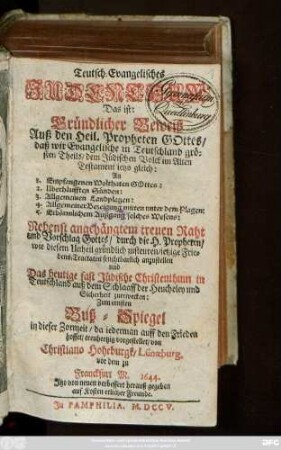 Teutsch-Evangelisches
JUDENTHUM
Das ist:
Gründlicher Beweiß
Auß den Heil. Propheten GOttes/
daß wir Evangelische in Teutschland grö-
sten Theils/ dem Jüdischen Volck im Alten
Testament jetzo gleich:
An
1. Empfangenen Wolthaten GOttes:
2. Uberhäufften Sünden:
3. Allgemeinen Landplagen:
4. Allgemeiner Bezeigung mitten unter den Plagen:
5. Erbärmlichem Außgang solches Wesens:
Nebenst angehängtem treuen Raht
und Vorschlag Gottes/ durch die H. Propheten/
wie diesem Unheil gründlich
dens Tractaten fruchtbarlich anzustellen
und
Das heutige fast Jüdische Christenthum in
Teutschland auß dem Schlaaff der Heucheley und
Sicherheit zuerwecken:
Zum ernsten
Buß-Spiegel
in dieser Zornzeit/ da iederman auff den Frieden
hoffet/ treuhertzig vorgestellet/ von
Christiano Hohburgk/ Lünæburg.
vor dem zu
Franckfurt M. 1644.
Itzo von neuen verbessert herauß gegeben
auff Kosten etlicher Freunde.
In PAMPHILIA. M.DCCV.
Gymnasium
Quedlinburg